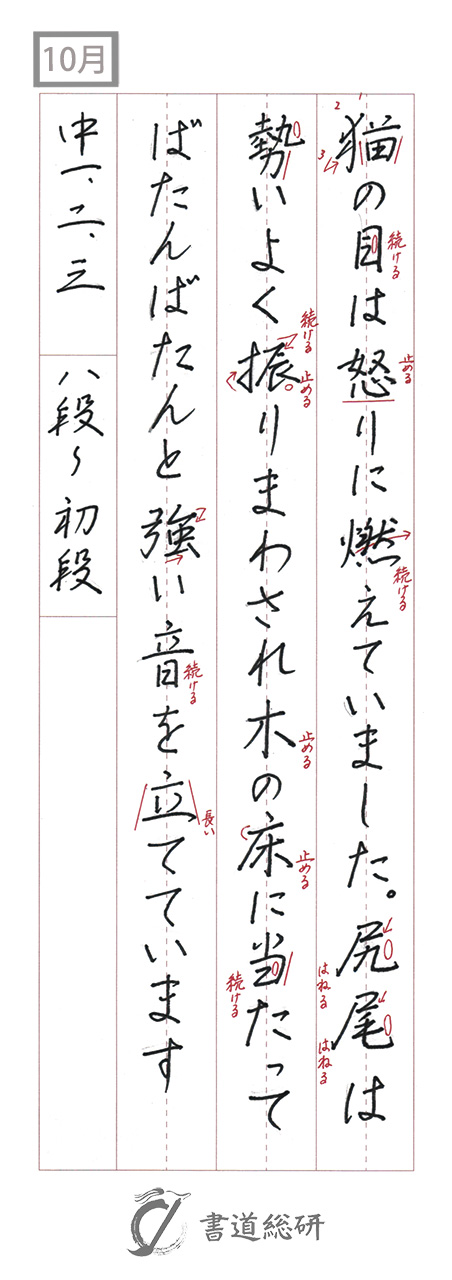 10月
猫の目は怒りに燃えていました。尻尾は
勢いよく振りまわされ木の床に当たって
ばたんばたんと強い音を立てています
中一、二、三
八段〜初段
1
2
3
続ける
止める
続ける
はねる
はねる
続ける
止める
止める
止める
続ける
続ける
長い
書道総研